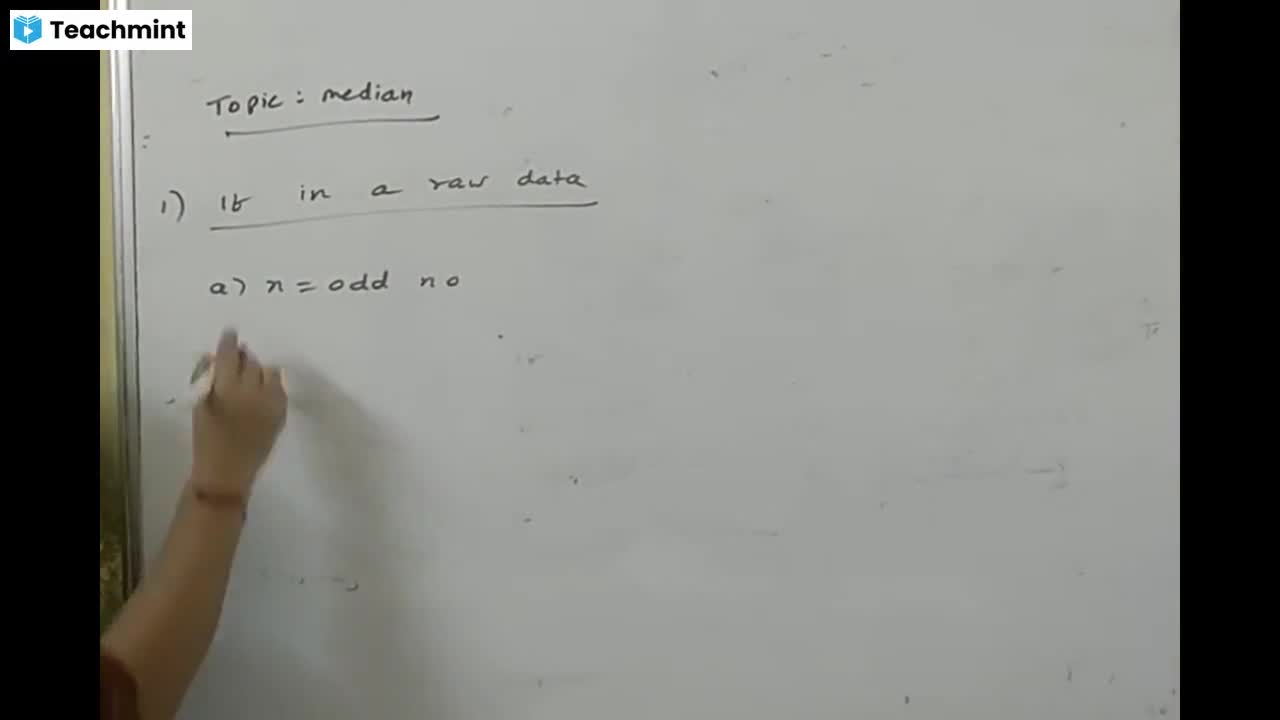 Teachmint
Topic: median
1) If in a raw data
a) n = odd no